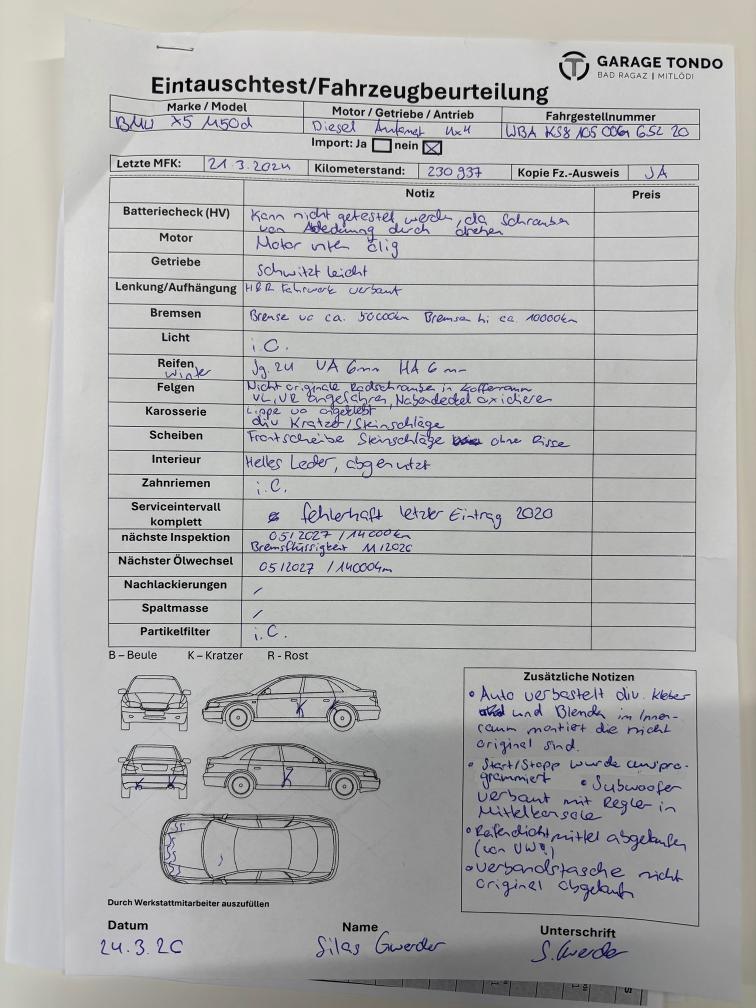 GARAGE TONDO
BAD RAGAZ | MITLÖDI
Eintauschtest/Fahrzeugbeurteilung
Marke / Model
Motor / Getriebe / Antrieb
Fahrgestellnummer
BMW X5 M50d
Diesel Automat 4x4
WBA KS8
Import: Ja nein
Letzte MFK: 21.3.2024 Kilometerstand: 230 937 Kopie Fz.-Ausweis JA
Notiz Preis
Batteriecheck (HV) Kann nicht getestet werden, da Schrauben
von Abdeckung durch drehen
Motor Motor unten ölig
Getriebe schwitzt leicht
Lenkung/Aufhängung H&R Fahrwerk verbaut
Bremsen Bremse va ca. 50000km Bremsen hi ca. 10000km
Licht i.O.
Reifen Winter Jg. 24 VA 6mm HA 6mm
Felgen Nicht originale Radschrauben in Kofferraum
VL, VR angefahren, Nabendeckel oxidieren
Karosserie Lippe va angeklebt
div Kratzer/Steinschläge
Scheiben Frontscheibe Steinschläge ohne Risse
Interieur Helles Leder, abgenutzt
Zahnriemen i.O.
Serviceintervall komplett fehlerhaft letzter Eintrag 2020
nächste Inspektion 05/2027 / 14000km
Bremsflüssigkeit 11/2026
Nächster Ölwechsel 05/2027 / 14000km
Nachlackierungen /
Spaltmasse /
Partikelfilter i.O.
B – Beule K – Kratzer R - Rost
K K
K K
K
Zusätzliche Notizen
• Auto verbastelt div. Kleber
und Blenden im Innen-
raum montiert die nicht
original sind.
• Start/Stopp wurde auspro-
grammiert • Subwoofer
verbaut mit Regler in
Mittelkonsole
• Reifendichtmittel abgelaufen
(von VW!)
• Verbandstasche nicht
original abgelaufen
Durch Werkstattmitarbeiter auszufüllen
Datum Name Unterschrift
24.3.26 Silas Gwerder S. Gwerder